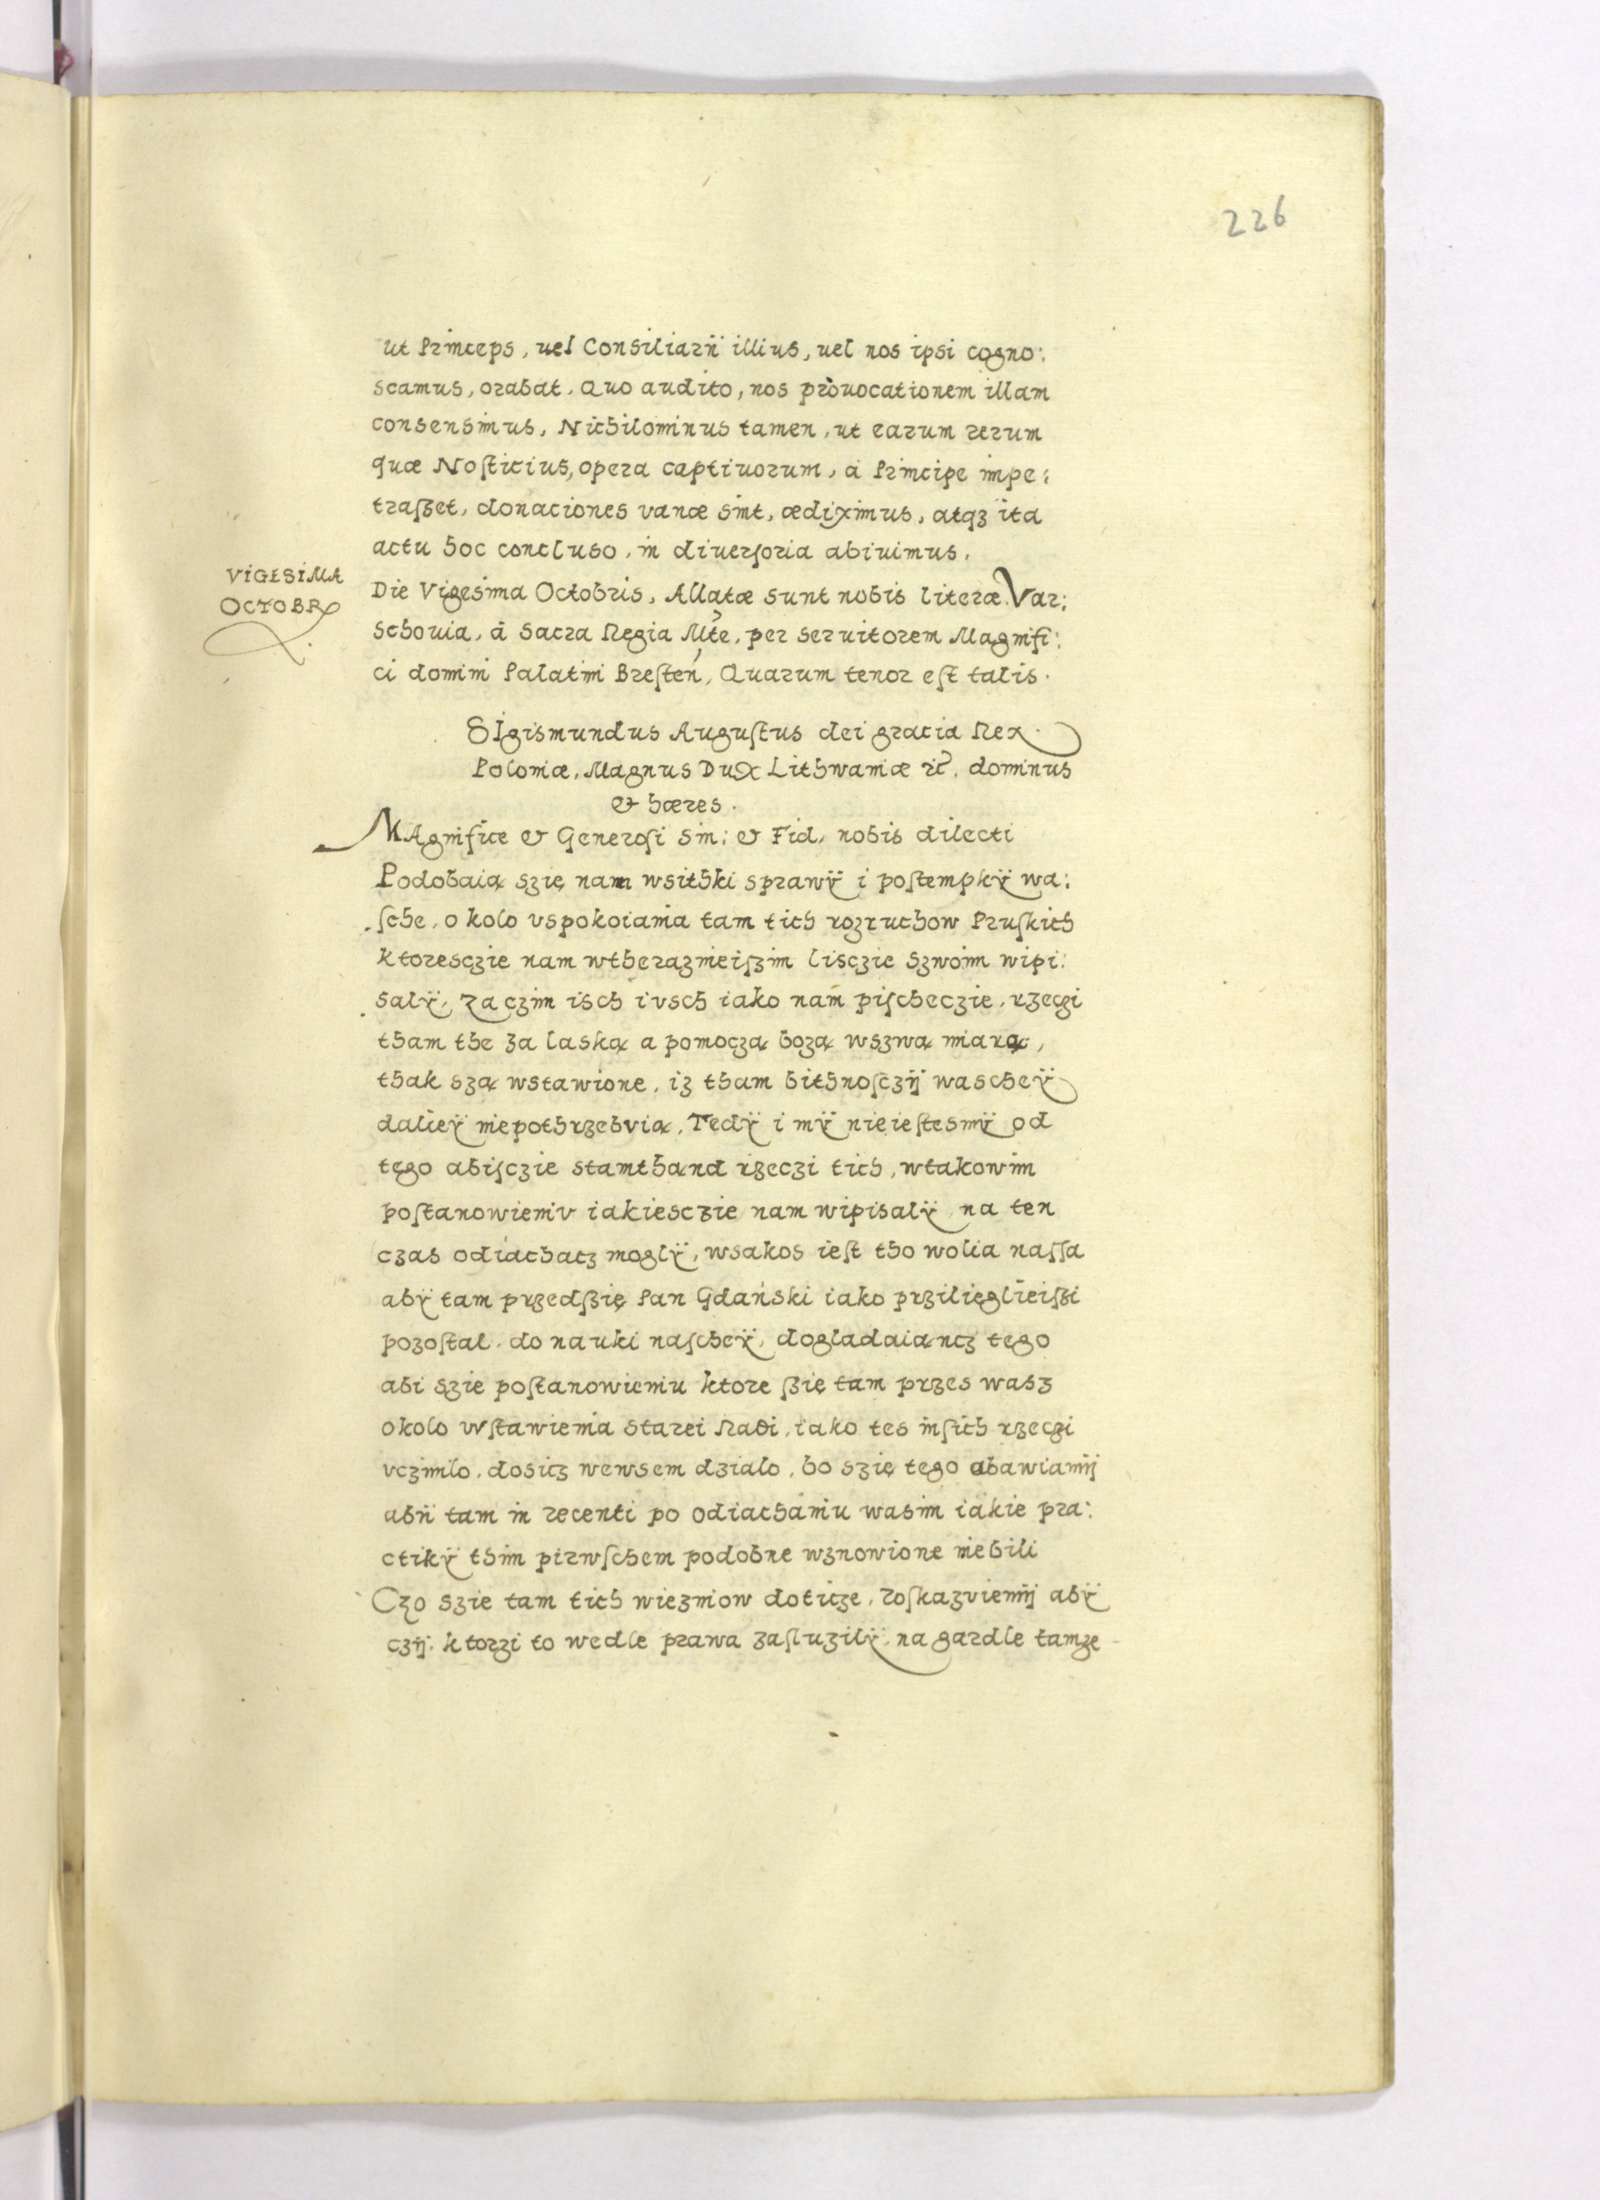 226
ut Princeps, uel Consiliarÿ illius, uel nos ipsi cogno:
scamus, orabat. Quo audito, nos prouocationem illam
consensimus, Nichilominus tamen, ut earum rerum
quæ Nosticius, opera captiuorum, à Principe impe:
traſzet, donaciones vanæ sint, ædiximus, atqꝫ ita
actu hoc concluso, in diuerſoria abiuimus.
VIGESIMA
OCTOBR
Die Vigesima Octobris, Allatæ sunt nobis literæ Var:
schouia, à Sacra Regia Mte, per seruitorem Magnifi:
ci domini Palatini Breſten, Quarum tenor eſt talis.
SIgismundus Auguſtus dei gracia Rex
Poloniæ, Magnus Dux Lithwaniæ ꝛc. dominus
& hæres.
MAgnifice & Generoſi Sin: & Fid, nobis dilecti
Podobaią szię nam wsithki sprawÿ i poſtempkÿ wa:
ſche, o kolo vspokoiania tam tich rozruchow Pruſkich
ktoresczie nam wtherazneiſzim lisczie Szwoim wipi:
salÿ, Za czim isch ivsch iako nam piſcheczie, rzeczi
tham the za laską a pomoczą bozą wszwą miarą,
thak szą wstawione, iz tham bithnoſczÿ wascheÿ
dalieÿ niepothrzebvią, Tedÿ i mÿ nieieſtesmÿ od
tego abiſczie stamthand rzeczi tich, wtakowim
poſtanowieniv iakiesczie nam wipisalÿ na ten
czas odiachacz moglÿ, wsakos ieſt tho wolia naſſa
abÿ tam przedſzię Pan Gdański iako przilięglieiſzi
pozoſtal do nauki naſcheÿ, dogladaiancz tego
abi szie poſtanowieniu ktore ſzię tam przes wasz
okolo wſtawienia starei Radi, iako tes inſich rzeczi
vczinilo, dosicz wewsem dzialo, bo szię tego abawiamÿ
abÿ tam in recenti po odiachaniu wasim iakie pra:
ctikÿ thim pirwſchem podobne wznowione niebili
Czo szie tam tich wiezniow doticze, roſkazviemÿ abÿ
czÿ, ktorzi to wedle prawa zaſluzilÿ, na gardle tamze